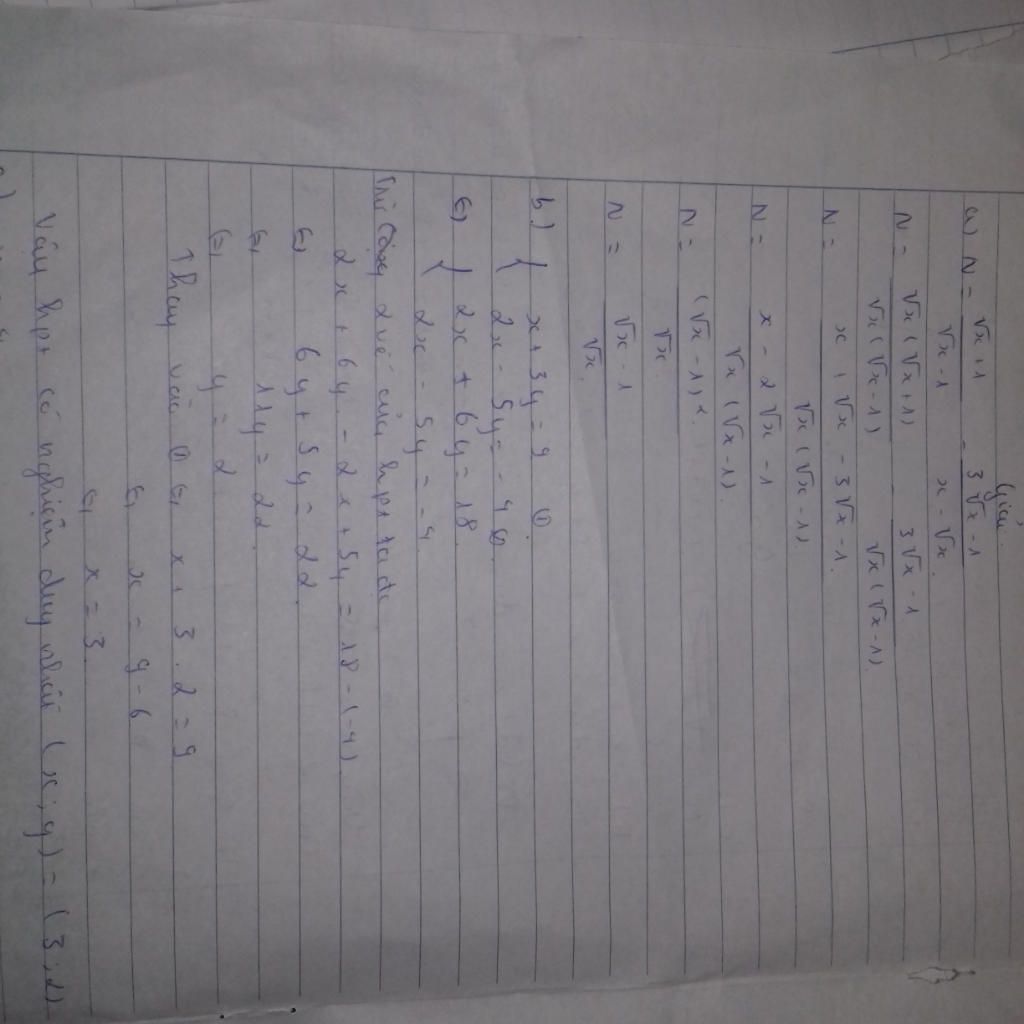 Giải.
a) N = (√x + 1)/(√x - 1) - (3√x - 1)/(x - √x).
N = √x(√x+1)/√x(√x-1) - (3√x - 1)/√x(√x-1).
N = (x + √x - 3√x - 1)/√x(√x-1).
N = (x - 2√x - 1)/√x(√x-1).
N = (√x-1)²/√x.
N = (√x - 1)/√x.
b.) { x + 3y = 9 ①
2x - 5y = -4 ②
⇔ { 2x + 6y = 18.
2x - 5y = -4
2 vế của hpt ta đc
2x + 6y - 2x + 5y = 18 - (-4).
⇔ 6y + 5y = 22.
⇔ 11y = 22.
⇔ y = 2
Thay vào ① ⇔ x + 3 . 2 = 9
⇔ x = 9 - 6
⇔ x = 3.
Vậy hpt có nghiệm duy nhất (x; y) = (3; 2)